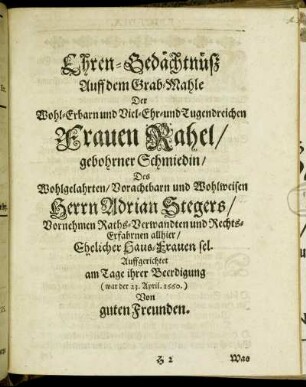 Ehren-Gedächtnüß
Auff dem Grab-Mahle
Der
Wohl-Erbarn und Viel-Ehr-und Tugendreichen
Frauen Rahel/
gebohrner Schmiedin/
Des
Wohlgelahrten/Vorachtbarn und Wohlweisen
Herrn Adrian Stegers/
Vornehmen Raths-Verwandten und Rechts-
Erfahrnen allhier/
Ehelicher Haus-Frauen sel.
Auffgerichtet
am Tage ihrer Beerdigung
(war der 23. April. 1660.)
Von
guten Freunden.
H 2 Was